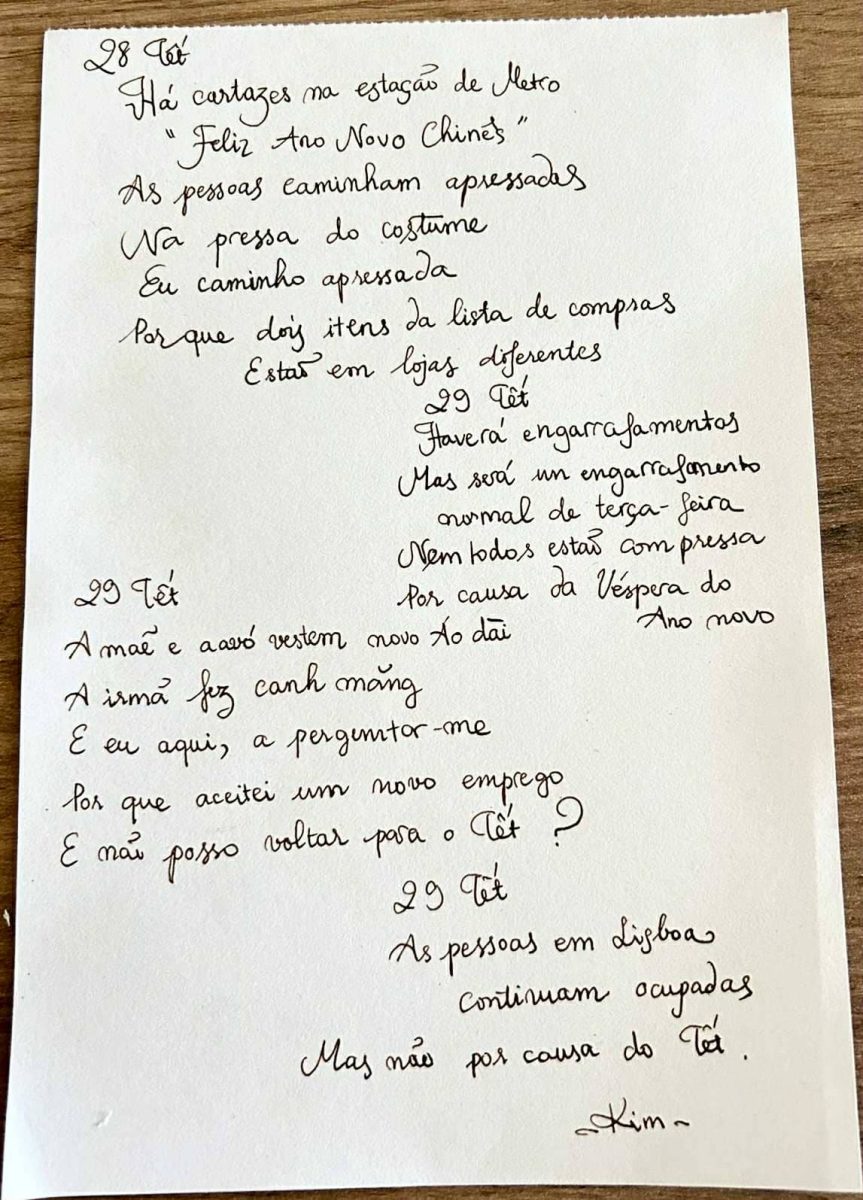 28 Tết
Há cartazes na estação de Metro
"Feliz Ano Novo Chinês"
As pessoas caminham apressadas
Na pressa do costume
Eu caminho apressada
Por que dois itens da lista de compras
Estão em lojas diferentes
29 Tết
Haverá engarrafamentos
Mas será un engarrafamento
normal de terça-feira
Nem todos estão com pressa
Por causa da Véspera do
Ano novo
29 Tết
A mãe e a avó vestem novo Áo dài
A irmã fez canh măng
E eu aqui, a perguntar-me
Por que aceitei um novo emprego
E não posso voltar para o Tết ?
29 Tết
As pessoas em Lisboa
continuam ocupadas
Mas não por causa do Tết.
~Kim~